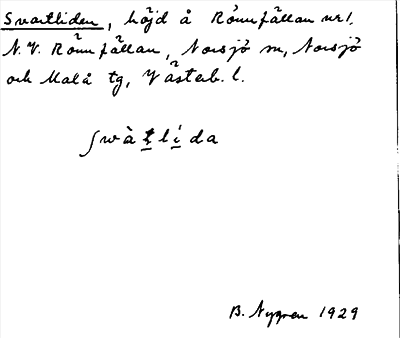 Svartliden, höjd å Rönnfällan nr 1,
N.V. Rönnfällan, Norsjö sn, Norsjö
och Malå tg, Västerb. l.
ʃwàt̲lí̲da
B. Nygren 1929